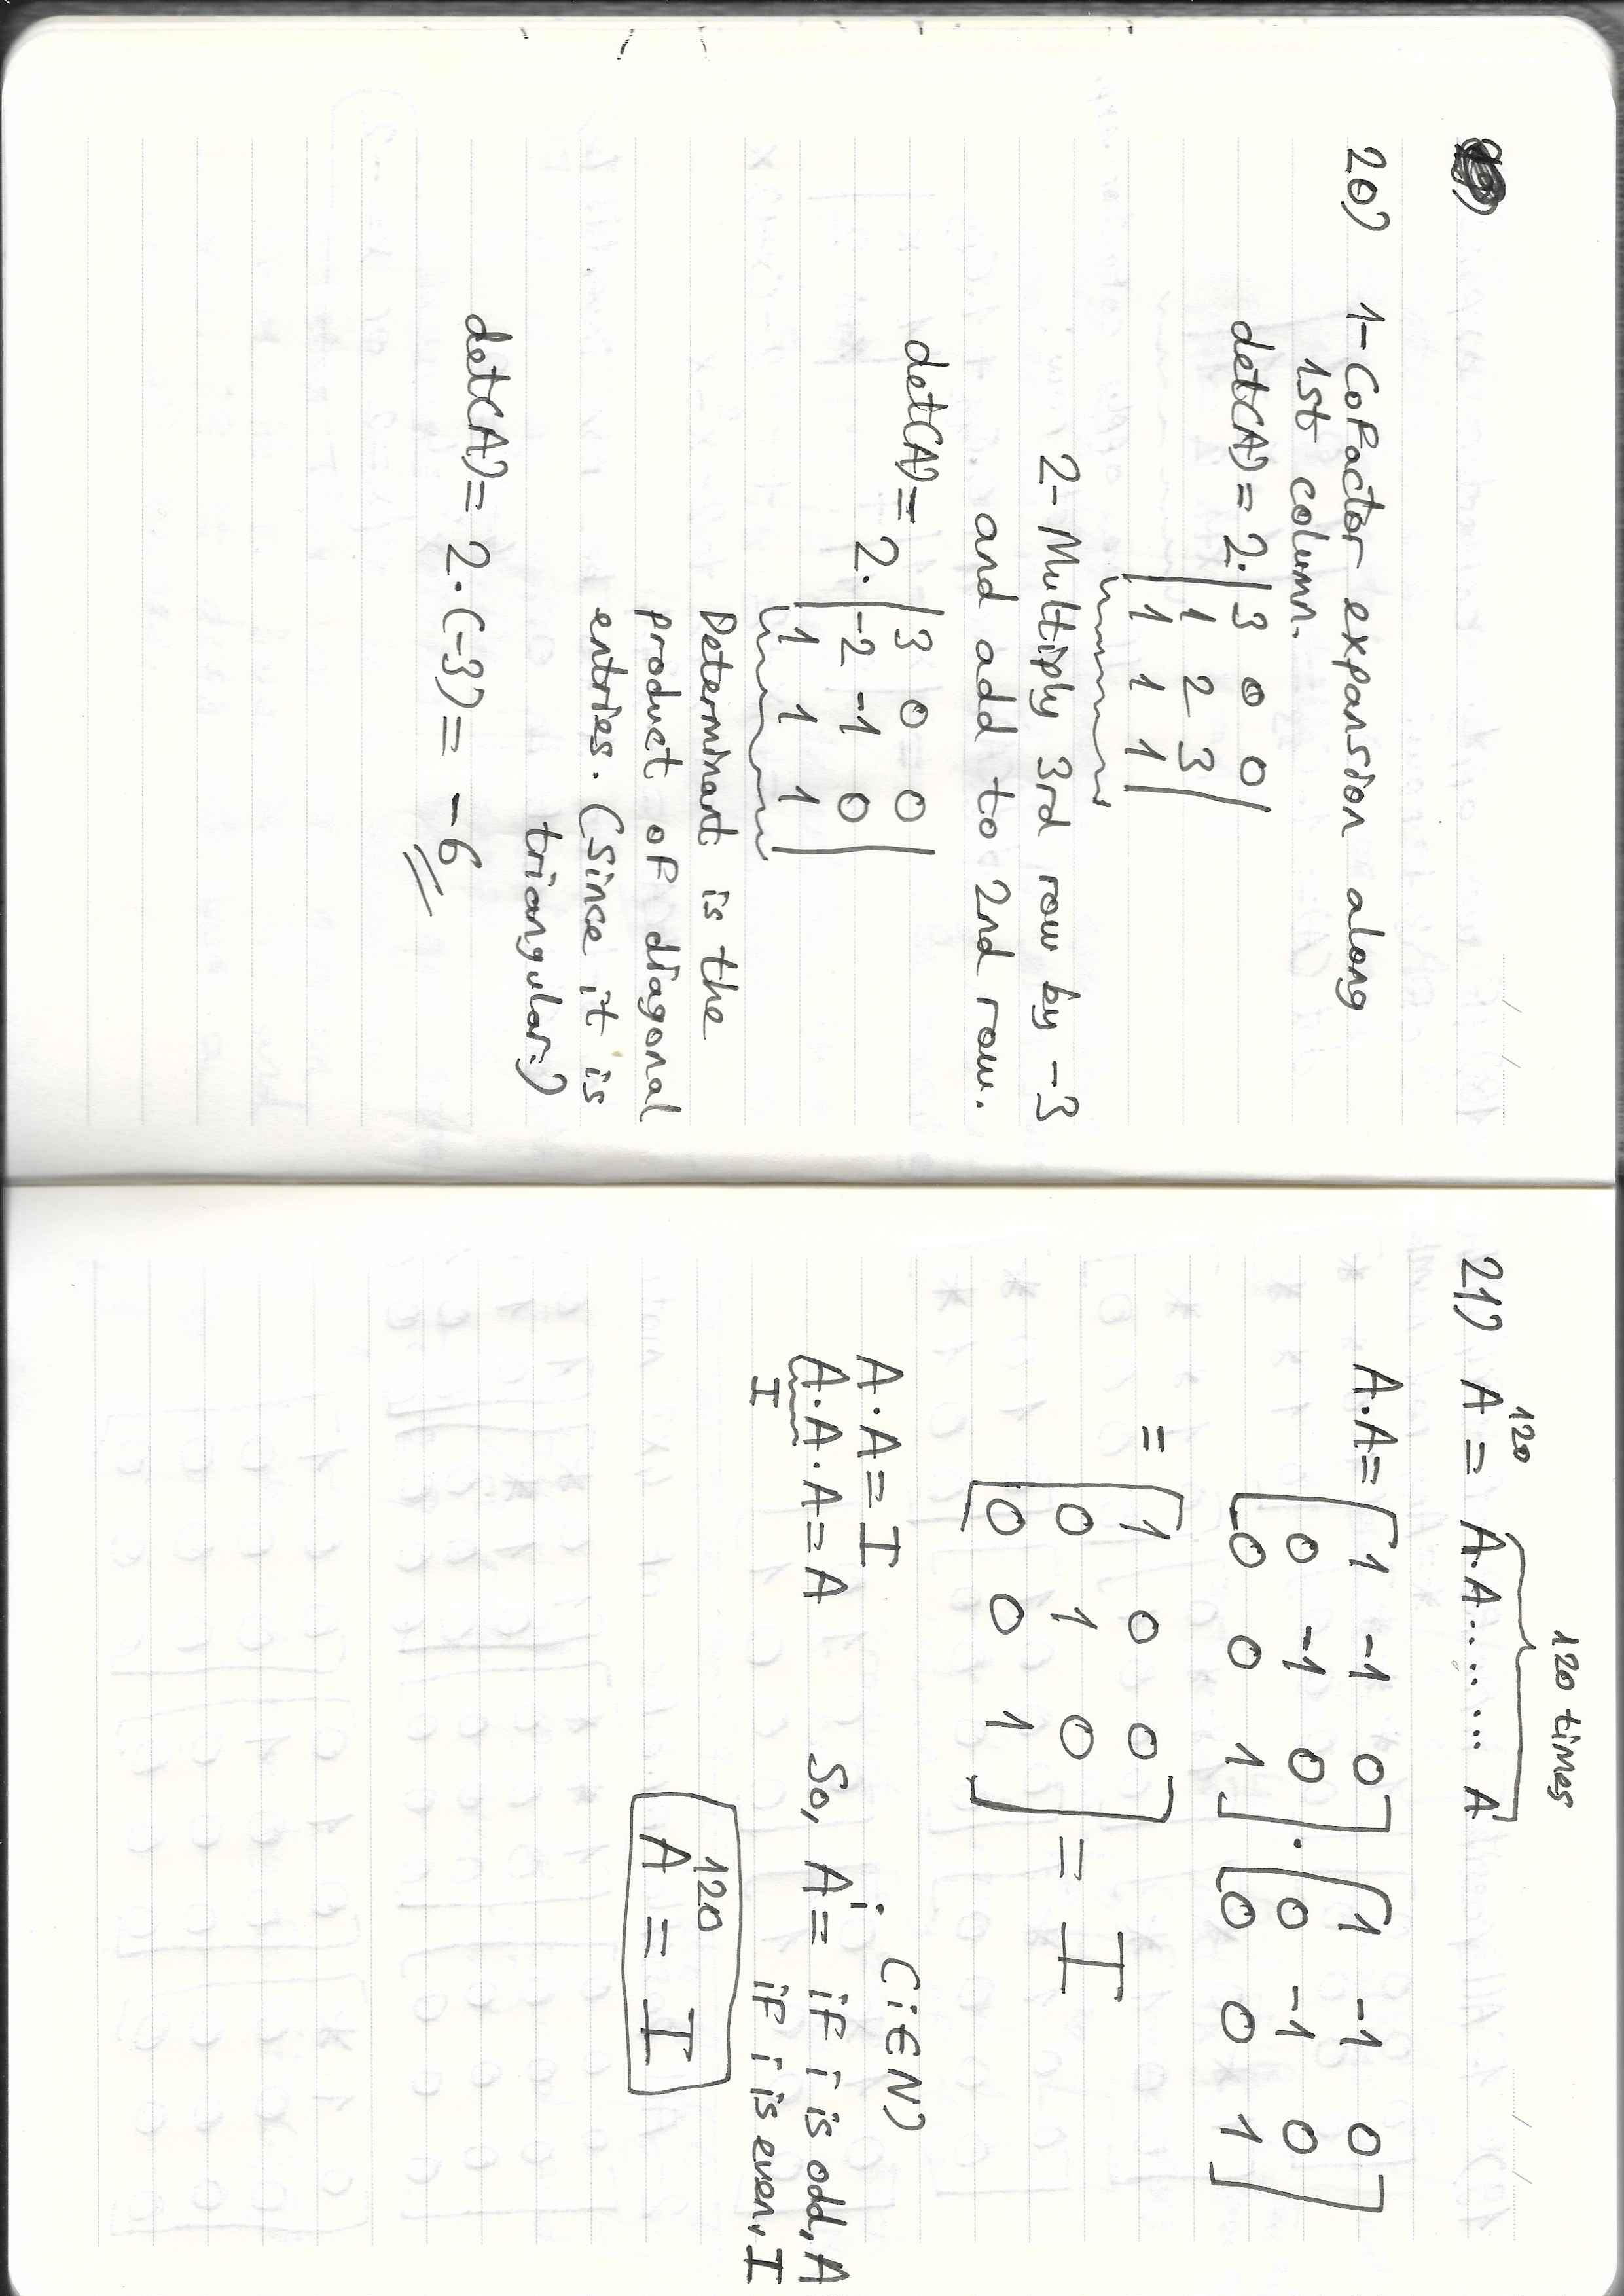 20) 1- Cofactor expansion along
1st column.
det(A) = 2. | 3 0 0 |
| 1 2 3 |
| 1 1 1 |
2- Multiply 3rd row by -3
and add to 2nd row.
det(A) = 2. | 3 0 0 |
| -2 -1 0 |
| 1 1 1 |
Determinant is the
product of diagonal
entries. (since it is
triangular.)
det(A) = 2.(-3) = -6
120 times
21) A^120 = A.A....... A
A.A = [ 1 -1 0 ] . [ 1 -1 0 ]
[ 0 -1 0 ] [ 0 -1 0 ]
[ 0 0 1 ] [ 0 0 1 ]
= [ 1 0 0 ]
[ 0 1 0 ] = I
[ 0 0 1 ]
A.A = I
A.A.A = A
I
(i∈N)
So, A^i = if i is odd, A
if i is even, I
A^120 = I